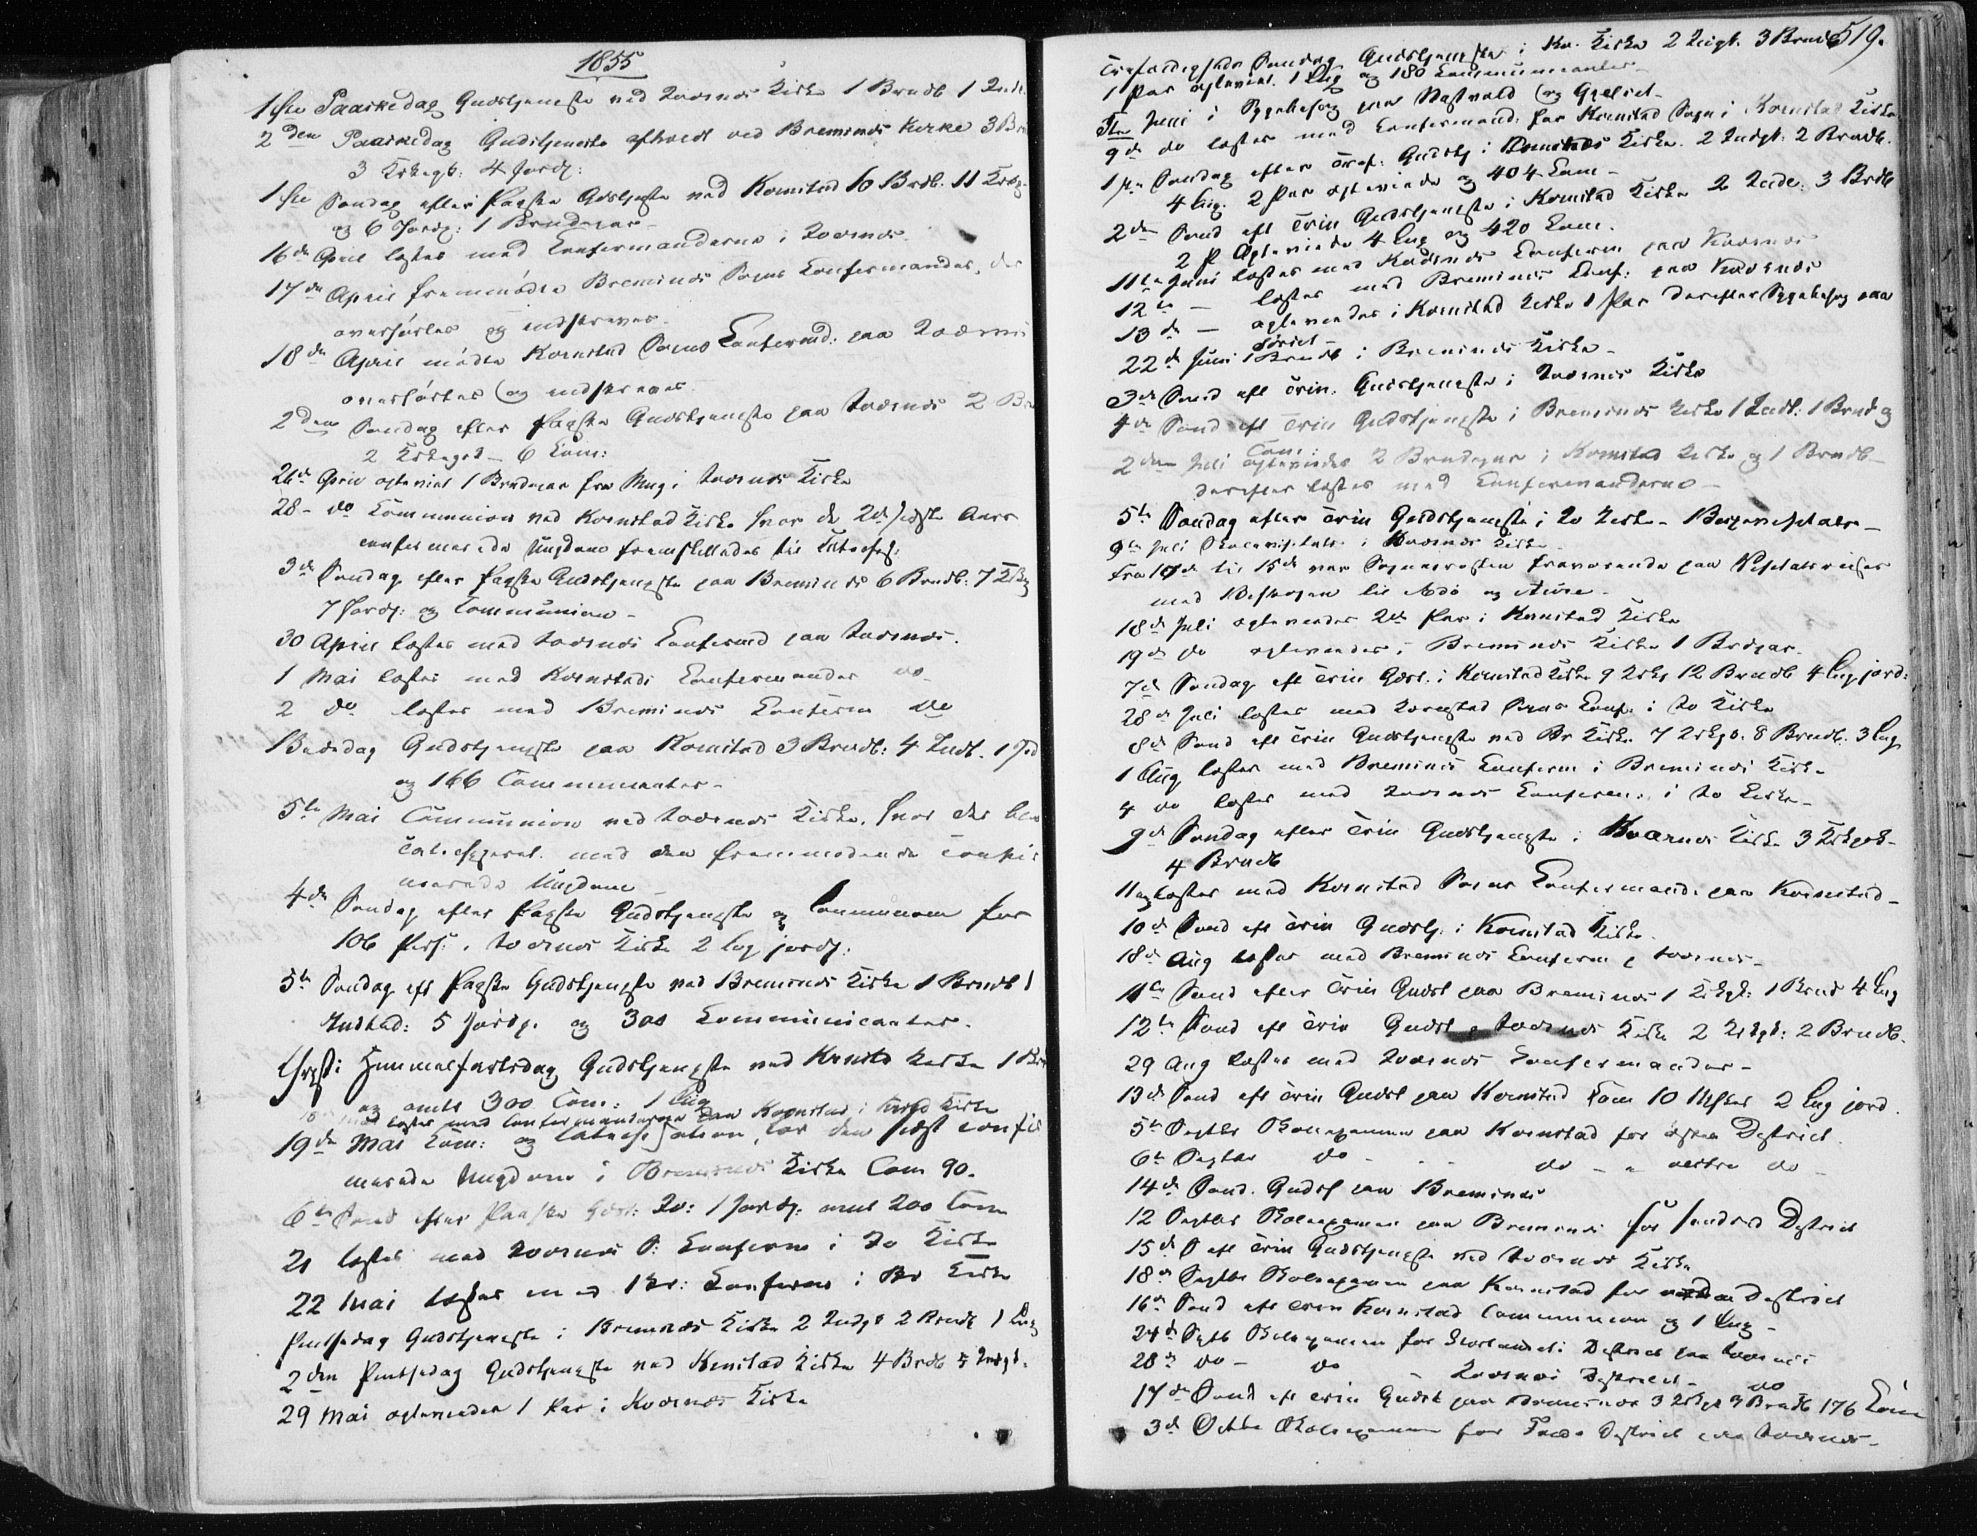 1855
1ste Paaskedag Gudstjeneste ved Kværnes Kirke 1 Brudb 1
2den Paaskedag Gudstjeneste afholdt ved Bremsnes Kirke 3
3 Kirkegb: 4 Jordf:
1ste Søndag efter Paaske Gudstjeneste ved Kornstad 10 Brdb. 11
og 6 Jordf: 1 Brudepar
16de April læstes med Confirmanderne i Kværnes
17de April fremmødte Bremsnes Sogns Confirmander, der
overhørtes og indskreves.
18de April mødte Kornstad Sogns Confirmd. paa Kværnes
overhørtes og indskreves.
2den Søndag efter Paaske Gudstjeneste paa Kværnes 2
2 Kirkegb – 6 Com:
26de April ægteviet 1 Brudepar fra i Kværnes Kirke
28 – do Communion ved Kornstad Kirke hvor de 2de sidste Aars
confirmerede Ungdom fremstilledes til
3de Søndag efter Paaske Gudstjeneste paa Bremsnes 6 Brudb: 7
7 Jordf: og Communion –
30 April læstes med Kværnes Confirmd paa Kværnes.
1 Mai læstes med Kornstads Confirmander do
2 do læstes med Bremsnes Confirm do
Bededag Gudstjeneste paa Kornstad 3 Brudb: 4 Indl. 1
og 166 Communicanter –
5te Mai Communion ved Kværnes Kirke, hvor der blev
catechiseret med den fremmødende confir
merede Ungdom
4de Søndag efter Paaske Gudstjeneste og Communion for
106 Pers: i Kværnes Kirke 2 Lig jordf:
5te Søndag eft Paaske Gudstjeneste ved Bremsnes Kirke 1 Brudb 1
Indled: 5 Jordf. og 300 Communicanter.
Christi Himmelfartsdag Gudstjeneste ved Kornstd Kirke 1
og omtr 300 Com: 1 Lig
læstes med Confirmanderne paa Kornstad i Kirke
19de Mai Com: og Catechisation, for den sidst confir
merede Ungdom i Bremsnes Kirke Com 90.
6te Sønd efter Paaske Gdst: Kv: 1 Jordf: omtr 200 Com
21 læstes med Kværnes S: Confirm i Kv Kirke
22 Mai læstes med Br: Confirm i Br Kirke
Pintsedag Gudstjeneste i Bremsnes Kirke 2 Indgt 2 Brudf 1 Lig
2den Pintsedag Gudstjeneste ved Kornstad Kirke 4 Brdb 5 Indgt.
29 Mai ægteviedes 1 Par i Kværnes Kirke
519.
Trefoldigheds Søndag Gudstjeneste i Kv. Kirke 2 Indgt. 3 Brudb
1 Par ægteviet. 1 Lig og 180 Communicanter –
Juni i Sygebesøg paa og
9de do læstes med Confirmand. for Kornstad Sogn i Kornstad Kirke
1ste Søndag efter Tref: Gudstj i Bremsnes Kirke. 2 Indgt. 2 Brudb.
4 Lig. 2 Par ægteviede og 404 Com –
2den Sønd eft Trin Gudstjeneste i Kornstad Kirke 2 Indl: 3 Brdb
2 P ægteviede 4 Lig og 420 Com.
11te Juni læstes med Kværnes Confirm paa Kværnes
12te – læstes med Bremsnes Conf: paa Kværnes
13de – ægteviedes i Kornstad Kirke 1 Par derefter Sygebesøg paa
22de Juni 1 Brudb i Bremsnes Kirke –
3de Sønd eft Trin. Gudstjeneste i Kværnes Kirke
4de Sønd eft Trin Gudstjeneste i Bremsnes Kirke 1 Indl: 1 Brud og
Com:
2den Juli ægteviedes 2 Brudepar i Kornstad Kirke og 1 Brudb –
derefter læstes med Confirmanderne –
5te Søndag efter Trin Gudstjeneste i Kv Kirke – Bispevisitats –
9de Juli i Kværnes Kirke
fra 10de til 15de var Sognepræsten fraværende paa Visitatsreiser
med Biskopen til Edø og Aure –
18de Juli ægteviedes 2de Par i Kornstad Kirke
19de do ægteviedes i Bremsnes Kirke 1 Brdpar.
7de Søndag eft Trin Gdst. i Kornstad Kirke 9 Krkg 12 Brudb 4 Lig jord:
28de Juli læstes med Kornstad Sogns Conf. i Kv Kirke
8de Sønd eft Trin Gudstjeneste ved Br Kirke 7 Krkgb. 8 Brudb. 3 Lig
1 Aug læstes med Bremsnes Confirm i Bremsnes Kirke
4 do læstes med Kværnes Confirm: i Kv Kirke –
9de Søndag efter Trin Gudstjeneste i Kværnes Kirke 3 Kirkegb –
4 Brudb
11 Aug læstes med Kornstad Sogns Confirmand. paa Kornstad –
10de Sønd eft Trin Gudstj. i Kornstad Kirke.
18de Aug læstes med Bremsnes Confirm i Kværnes –
11te Sønd efter Trin Gudst paa Bremsnes 1 Kirkgb: 1 Brud 4 Lig
12te Sønd eft Trin Gudst i Kværnes Kirke 2 Kirkgb: 2 Brudb.
29 Aug læstes med Kværnes Confirmander –
13de Sønd eft Trin Gudst paa Kornstad Com 10 2 Lig jord.
5te Septbr Skoleexamen paa Kornstad for østre District
6te Septbr do – – do – – vestre do –
14de Sønd. Gudst paa Bremsnes
12 Septbr Skoleexamen paa Bremsnes for søndre District
15de S eft Trin Gudstjeneste ved Kværnes Kirke
18de Septbr Skoleexamen paa Kornstad for District
16de Sønd eft Trin Kornstad Communion og 1 Lig –
24de Septb Skoleexamen for District paa Kværnes
28de do – do Kværnes District – do
17de Sønd eft Trin Gudst paa Bremsnes 3 Kirkgb 9 Brudb 176 Com
3de Octbr Skoleexamen for District paa Kværnes –